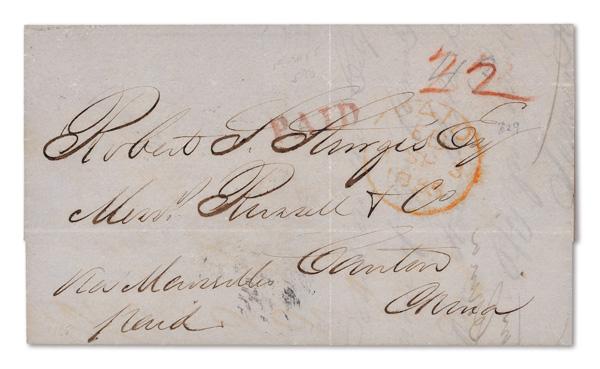 22
PAID
PAID
Robert S. Sturgis Esq
Messrs. Russell & Co
Canton
China
via Marseilles
paid.
329